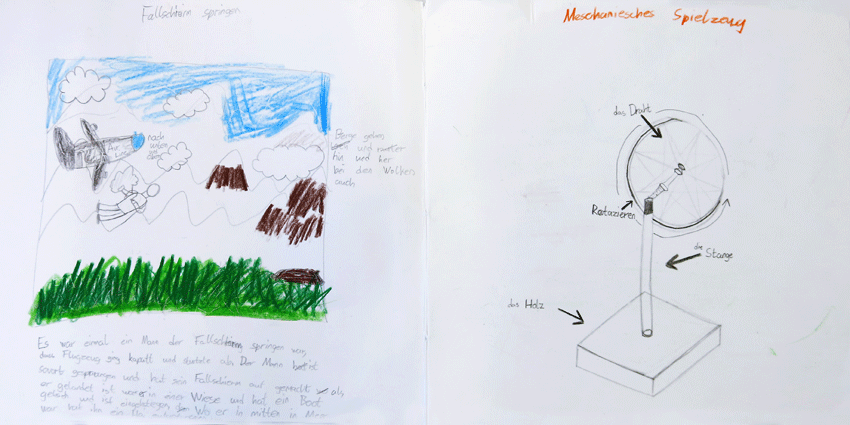 Fallschirm springen
nach
unten
Berge gehen
und runter
hin und her
bei den Wolken
auch
Es war einmal ein Mann der Fallschirm springen war,
das Flugzeug ging kaputt und stürtzte ab. Der Mann ist
sovort gesprungen und hat sein Fallschirm auf gemacht als
er gelandet ist war er in einer Wiese und hat ein Boot
und ist eingestiegen, Wo er in mitten in Meer
war hat ihn ein
Meschaniesches Spielzeug
das Draht
Rotazieren
die Stange
das Holz